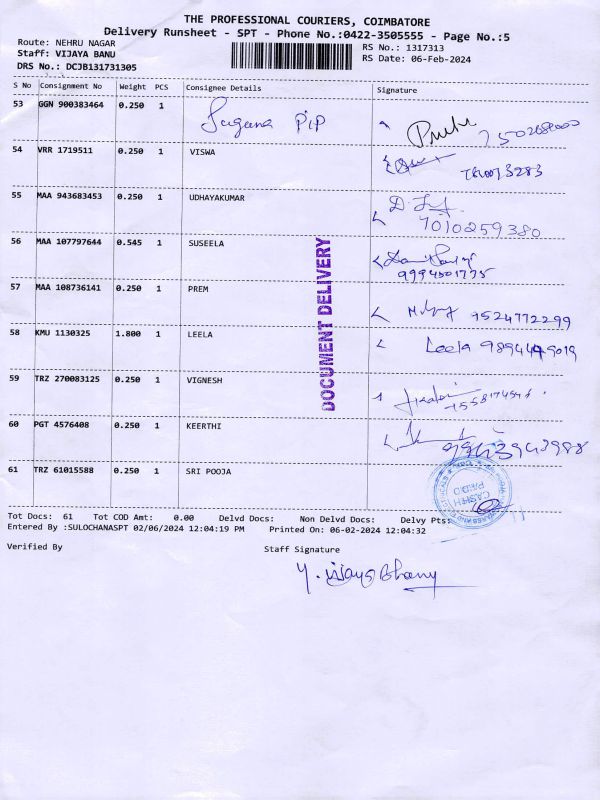 THE PROFESSIONAL COURIERS, COIMBATORE
Delivery Runsheet - SPT - Phone No.:0422-3505555 - Page No.:5
Route: NEHRU NAGAR
RS No.: 1317313
Staff: VIJAYA BANU
RS Date: 06-Feb-2024
DRS No.: DCJB131731305
S No Consignment No Weight PCS Consignee Details Signature
53 GGN 900383464 0.250 1 Suguna PIP
54 VRR 1719511 0.250 1 VISWA
55 MAA 943683453 0.250 1 UDHAYAKUMAR
7010259380
56 MAA 107797644 0.545 1 SUSEELA
57 MAA 108736141 0.250 1 PREM
9524772299
58 KMU 1130325 1.800 1 LEELA Leela
59 TRZ 270083125 0.250 1 VIGNESH
60 PGT 4576408 0.250 1 KEERTHI
61 TRZ 61015588 0.250 1 SRI POOJA
DOCUMENT DELIVERY
Tot Docs: 61 Tot COD Amt: 0.00 Delvd Docs: Non Delvd Docs: Delvy Pts:
Entered By :SULOCHANASPT 02/06/2024 12:04:19 PM Printed On: 06-02-2024 12:04:32
Verified By Staff Signature